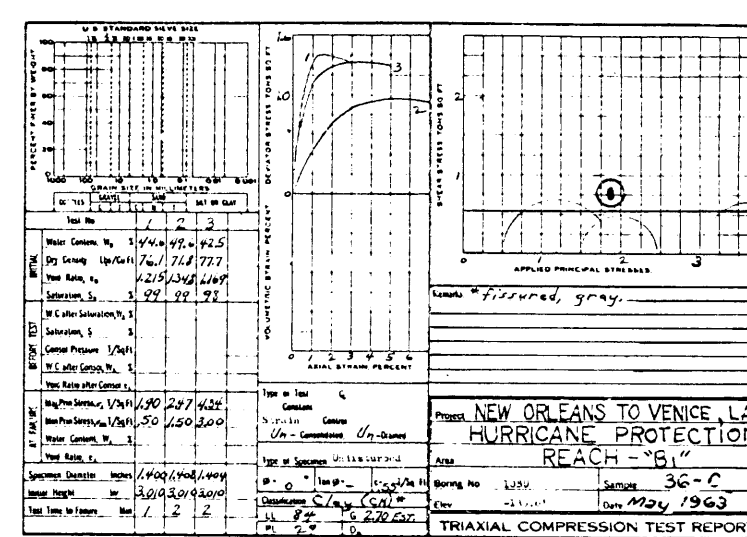 U S STANDARD SIEVE SIZE
PERCENT FINER BY WEIGHT
100
80
60
40
20
1000 100 10 1.0 0.1 0.01 0.001
GRAIN SIZE IN MILLIMETERS
GRAVEL SAND SILT OR CLAY
Test No 1 2 3
INITIAL
Water Content, W₀ % 44.6 49.6 42.5
Dry Density Lbs/Cu Ft 76.1 71.8 77.7
Void Ratio, e₀ 1.215 1.348 1.169
Saturation, S₀ % 99 99 98
BEFORE TEST
W.C after Saturation, W %
Saturation, S %
Consol Pressure T/Sq Ft
W.C after Consol, W %
Void Ratio after Consol e
AT FAILURE
Max Prin Stress, T/Sq Ft 1.90 2.47 4.34
Min Prin Stress, T/Sq Ft .50 1.50 3.00
Water Content, W %
Void Ratio, e
Specimen Diameter inches 1.400 1.408 1.404
Initial Height in 3.010 3.010 3.010
Test Time to Failure Min 1 2 2
DEVIATOR STRESS TONS SQ FT
1
3
2
0
VOLUMETRIC STRAIN PERCENT
0 1 2 3 4 5 6
AXIAL STRAIN PERCENT
Type of Test Q
Constant
Strain Control
Un - Consolidated Un - Drained
Type of Specimen Undisturbed
Ø = 0 Tan Ø = - c = .55 T/Sq Ft
Classification Clay (CH) *
LL 84 G 2.70 EST.
PL 29 D
SHEAR STRESS TONS SQ FT
2
1
0 1 2 3
APPLIED PRINCIPAL STRESSES
Remarks * fissured, gray.
Project NEW ORLEANS TO VENICE, LA
HURRICANE PROTECTION
Area REACH - "B1"
Boring No Sample 36-C
Elev Date May 1963
TRIAXIAL COMPRESSION TEST REPOR